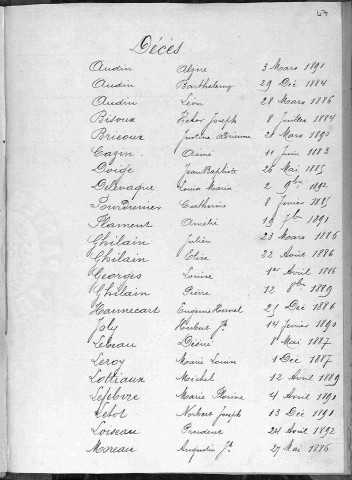 47
Décès
Audin Alzire 3 Mars 1891
Audin Barthelemy 29 Déc 1884
Audin Léon 28 Mars 1886
Bisoux Victor Joseph 8 Juillet 1884
Bricoux Justine 20 Mars 1890
Cazin Aimé 11 Juin 1883
Doige Jean Baptiste 26 Mai 1885
Delevaque Louis Marie 2 9bre 1892
Fourdrenier Catherine 8 Janvier 1885
Flament Amélie 19 7bre 1891
Ghilain Julien 23 Mars 1886
Ghilain Elise 22 Août 1886
Georges Louise 1er Avril 1886
Ghilain Pierre 12 8bre 1889
Hannecart Eugene 25 Déc 1886
Joly Hubert Jh 14 février 1890
Lebeau Désiré 8 Mai 1887
Leroy Marie Louise 1 Déc 1887
Lottiaux Michel 12 Avril 1889
Lefebvre Marie Florine 4 Avril 1891
Letot Norbert Joseph 13 Déc 1891
Loiseau Prudent 24 Août 1892
Moreau Augustin Jh 27 Mai 1886